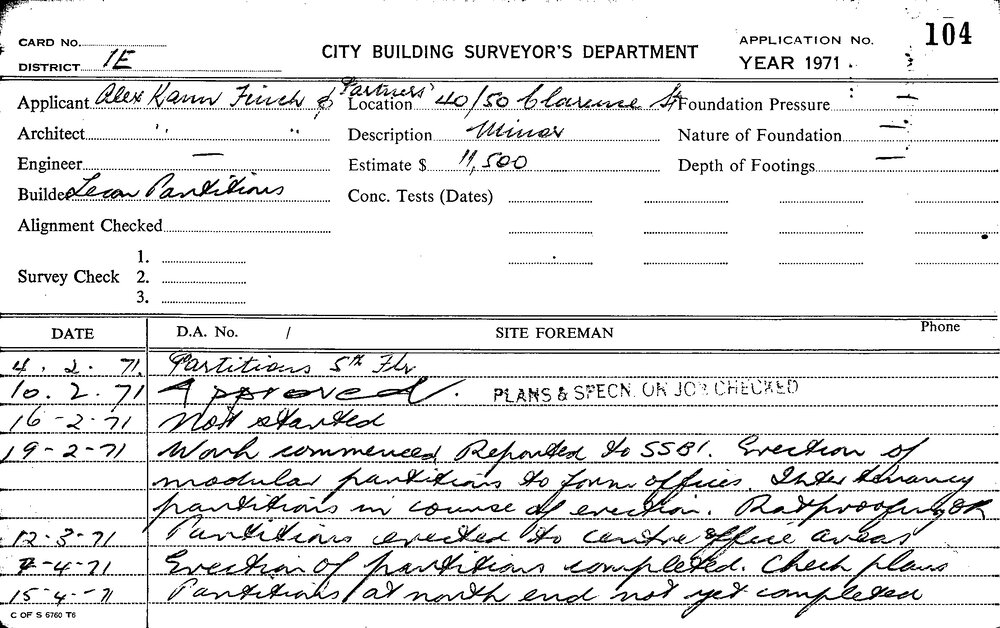 104
CARD No.
DISTRICT 1E
CITY BUILDING SURVEYOR'S DEPARTMENT
APPLICATION No.
YEAR 1971
Applicant Alex Kann Finch & Partners'
Location 40/50 Clarence St
Foundation Pressure —
Architect " "
Description Minor
Nature of Foundation —
Engineer —
Estimate $ 11,500
Depth of Footings —
Builder Lecon Partitions
Conc. Tests (Dates)
Alignment Checked
Survey Check 1.
2.
3.
DATE D.A. No. / SITE FOREMAN Phone
4. 2. 71. Partitions 5th Flr
10. 2. 71 Approved. PLANS & SPECN. ON JOB CHECKED
16-2-71 Not started
19-2-71 Work commenced Reported to SSBI. Erection of
modular partitions to form offices. Inter tenancy
partitions in course of erection. Ratproofing OK
12-3-71 Partitions erected to centre office areas
7-4-71 Erection of partitions completed. Check plans
15-4-71 Partitions at north end not yet completed
C OF S 6760 T6